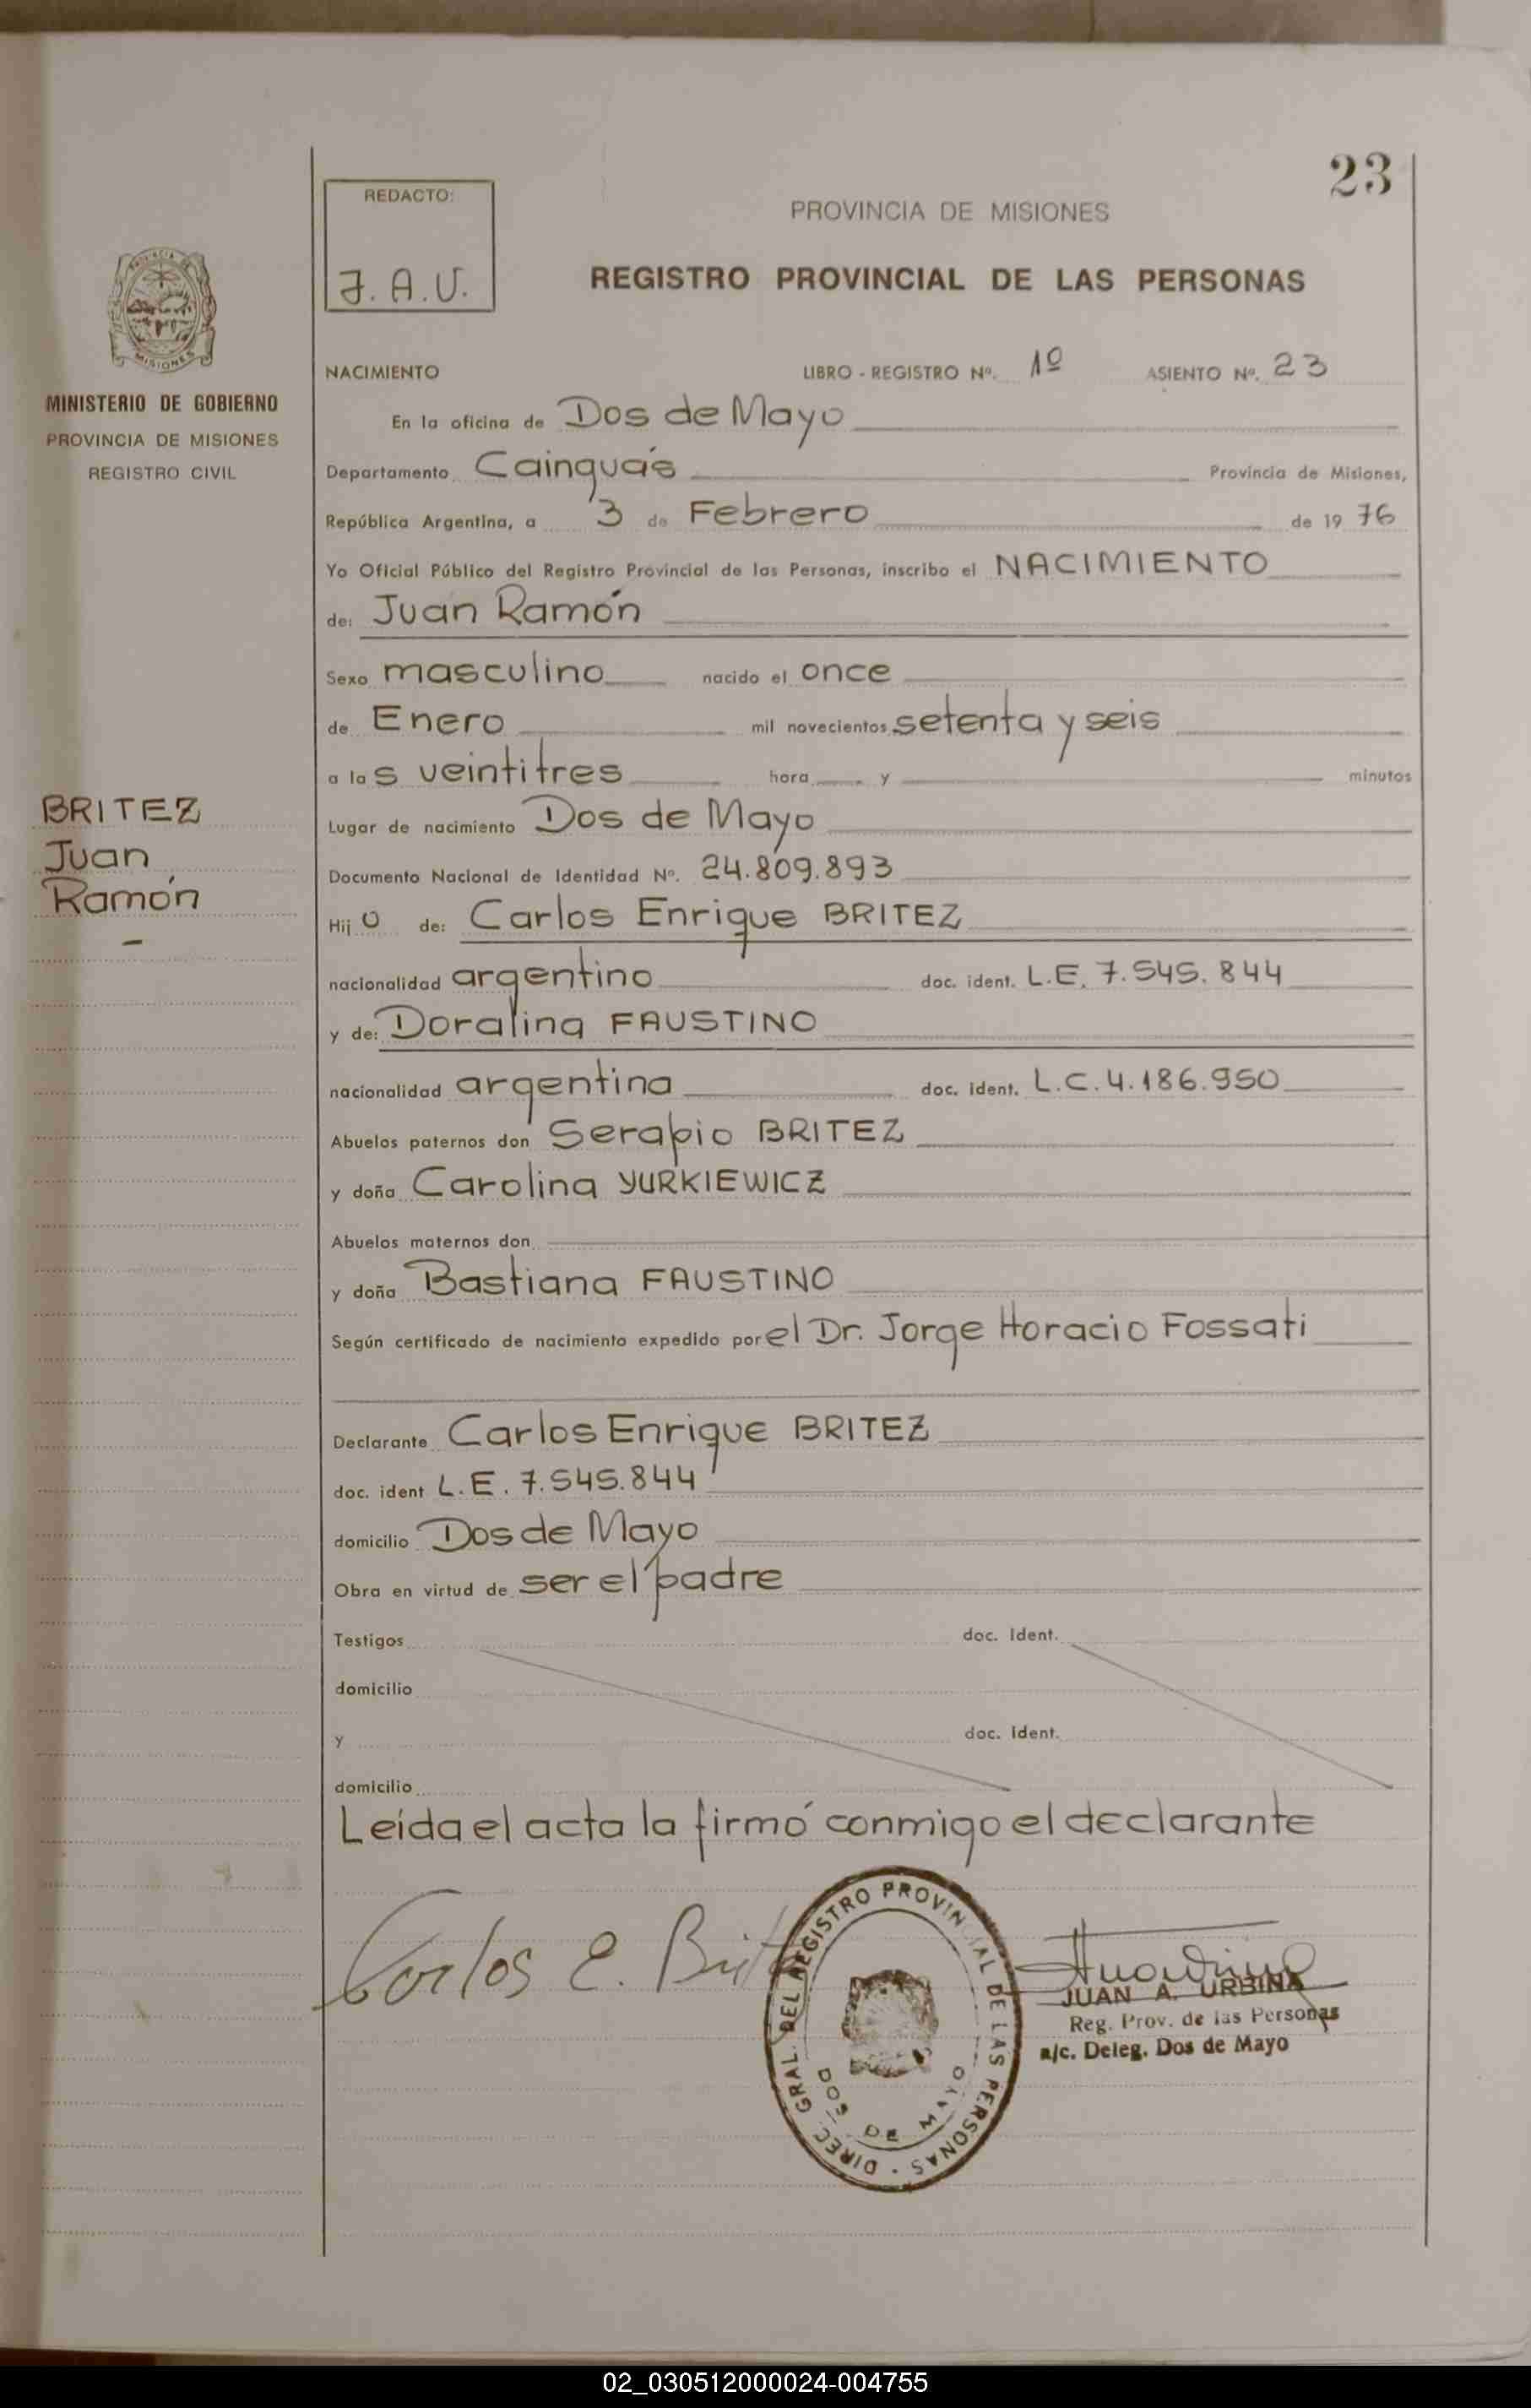 23
REDACTO:
J. A. U.
PROVINCIA DE MISIONES
REGISTRO PROVINCIAL DE LAS PERSONAS
MISIONES
MINISTERIO DE GOBIERNO
PROVINCIA DE MISIONES
REGISTRO CIVIL
BRITEZ
Juan
Ramón
NACIMIENTO LIBRO - REGISTRO Nº. 1º ASIENTO Nº. 23
En la oficina de Dos de Mayo
Departamento Cainguás Provincia de Misiones,
República Argentina, a 3 de Febrero de 19 76
Yo Oficial Público del Registro Provincial de las Personas, inscribo el NACIMIENTO
de: Juan Ramón
Sexo masculino nacido el once
de Enero mil novecientos setenta y seis
a las veintitres hora y minutos
Lugar de nacimiento Dos de Mayo
Documento Nacional de Identidad Nº. 24.809.893
Hijo de: Carlos Enrique BRITEZ
nacionalidad argentino doc. ident. L.E. 7.545.844
y de: Doralina FAUSTINO
nacionalidad argentina doc. ident. L.C. 4.186.950
Abuelos paternos don Serapio BRITEZ
y doña Carolina YURKIEWICZ
Abuelos maternos don
y doña Bastiana FAUSTINO
Según certificado de nacimiento expedido por el Dr. Jorge Horacio Fossati
Declarante Carlos Enrique BRITEZ
doc. ident L.E. 7.545.844
domicilio Dos de Mayo
Obra en virtud de ser el padre
Testigos doc. Ident.
domicilio
y doc. Ident.
domicilio
Leída el acta la firmó conmigo el declarante
Carlos E. Britez
DIREC. GRAL. DEL REGISTRO PROVINCIAL DE LAS PERSONAS
DOS DE MAYO
JUAN A. URBINA
Reg. Prov. de las Personas
a/c. Deleg. Dos de Mayo
02_030512000024-004755